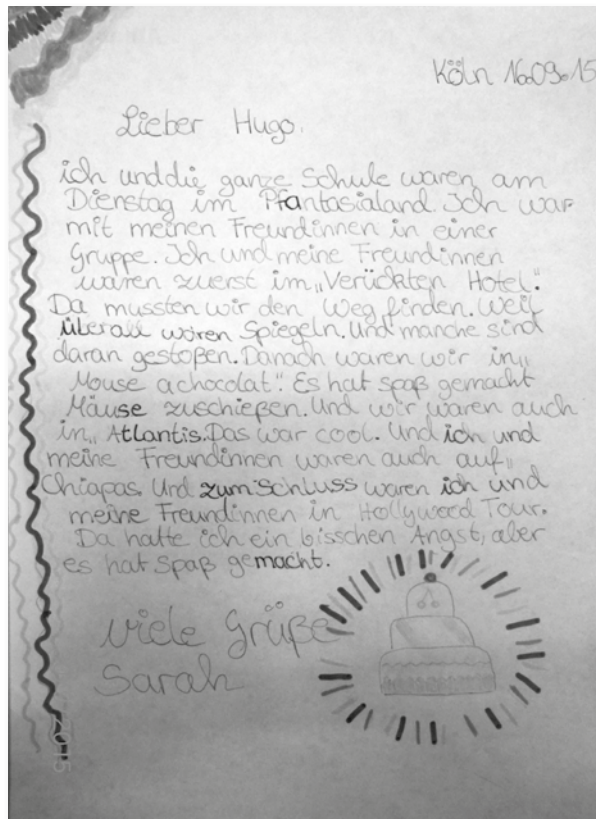 Köln 16.09.15
Lieber Hugo.
ich und die ganze Schule waren am
Dienstag im Pfantasialand. Ich war
mit meinen Freundinnen in einer
Gruppe. Ich und meine Freundinnen
waren zuerst im „Verückten Hotel".
Da mussten wir den Weg finden. Weil
überall wären Spiegeln. Und manche sind
daran gestoßen. Danach waren wir in „
Mouse a chocolat". Es hat spaß gemacht
Mäuse zuschießen. Und wir waren auch
in „ Atlantis. Das war cool. Und ich und
meine Freundinnen waren auch auf „
Chiapas. Und zum Schluss waren ich und
meine Freundinnen in Hollywood Tour.
Da hatte ich ein bisschen Angst, aber
es hat Spaß gemacht.
viele Grüße
Sarah